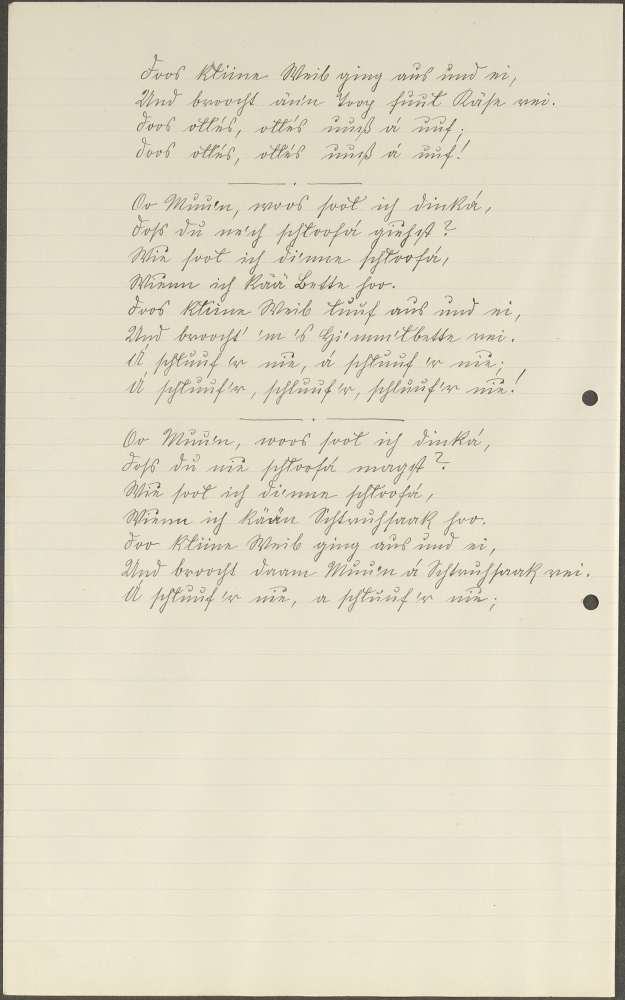 Doos kliine Weib ging aus und ei,
Und broocht änn Toop fuul Käse rei.
Doos ollés, ollés uuß á uuf;
Doos ollés, ollés uuß á uuf!
Oo Muun, woos sool ich dinká,
Doß du ne'ch schloofá giehst?
Wie sool ich dinne schloofá,
Wienn ich kää Bette hoo.
Doos kliine Weib luuf aus und ei,
Und broocht' 'm 's Himmilbette rei.
Á schluuf 'r nie, á schluuf 'r nie;
Á schluuf'r, schluuf'r, schluuf'r nie!
Oo Muun, woos sool ich dinká,
Doß du nie schloofá magst?
Wie sool ich dinne schloofá,
Wienn ich kään Schtruhsaak hoo.
Doo kliine Weib ging aus und ei,
Und broocht daam Muun á Schtruhsaak rei.
Á schluuf 'r nie, a schluuf 'r nie;